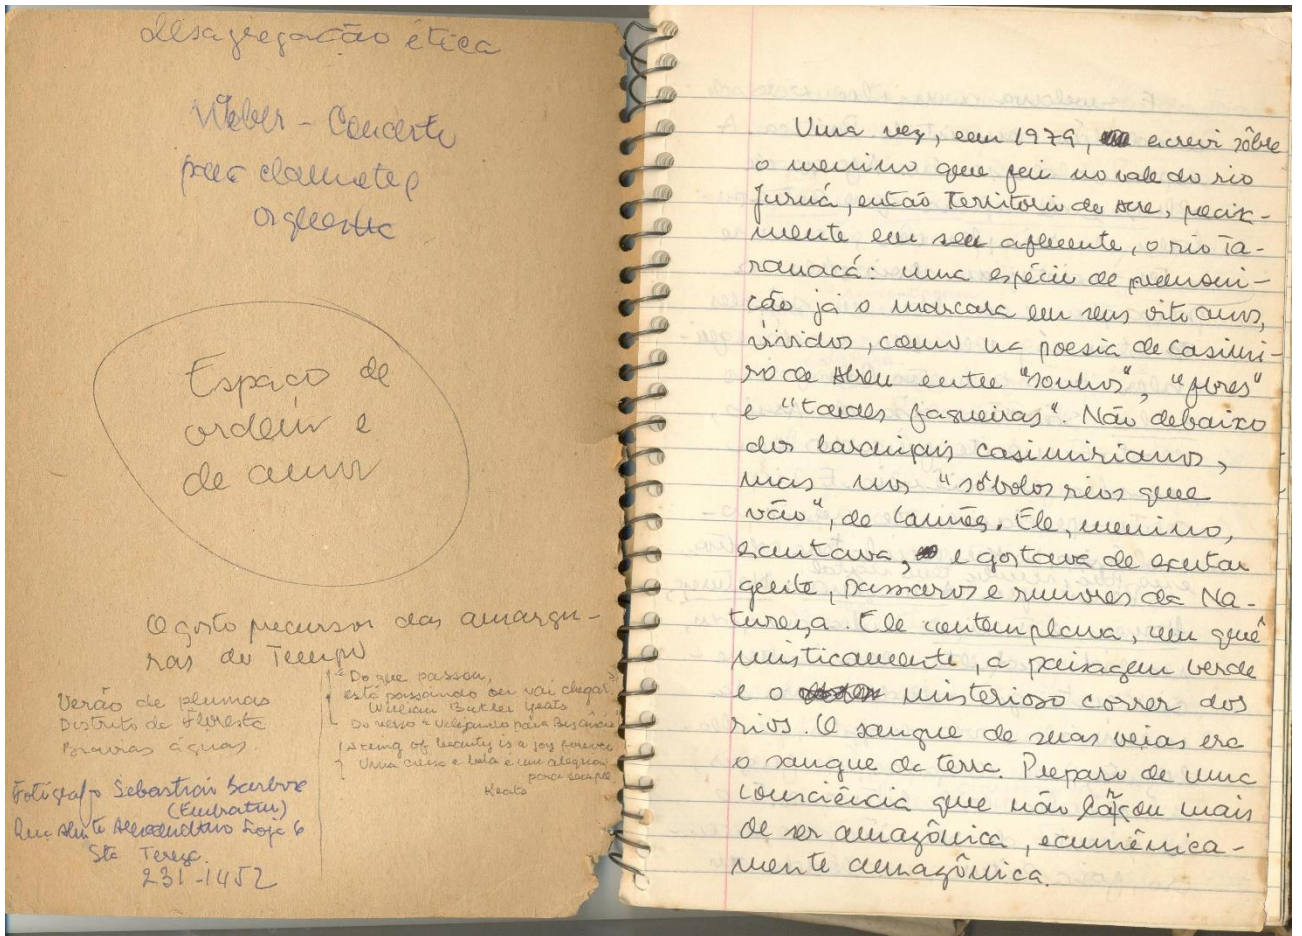 desagregação ética
Weber - Concerto
para clarinete e
orquestra
Espaço de
ordem e
de amor
O gosto precursor das amargu-
ras do Tempo
Verão de plumas
Distrito de Floresta
Bravias águas.
"Do que passou,
está passando ou vai chegar"
William Butler Yeats
Do verso "Velejando para Bizâncio"
A thing of beauty is a joy forever
Uma coisa bela é uma alegria
para sempre
Keats
Fotógrafo Sebastião Barbosa
(Embratur)
Rua Almte Alexandrino Loja 6
Sta Tereza.
231-1452
Uma vez, em 1979, escrevi sôbre
o menino que fui no vale do rio
Juruá, então Território do Acre, precisa-
mente em seu afluente, o rio Ta-
rauacá: uma espécie de premoni-
ção já o marcara em seus oito anos,
vividos, como na poesia de Casimi-
ro de Abreu entre "sonhos", "flores"
e "tardes fagueiras". Não debaixo
dos laranjais casimirianos,
mas nos "sôbolos rios que
vão", de Camões. Ele, menino,
escutava, e gostava de escutar
gente, pássaros e rumores da Na-
tureza. Ele contemplava, um quê
misticamente, a paisagem verde
e o misterioso correr dos
rios. O sangue de suas veias era
o sangue da terra. Preparo de uma
consciência que não mais
de ser amazônica, ecumênica-
mente amazônica.